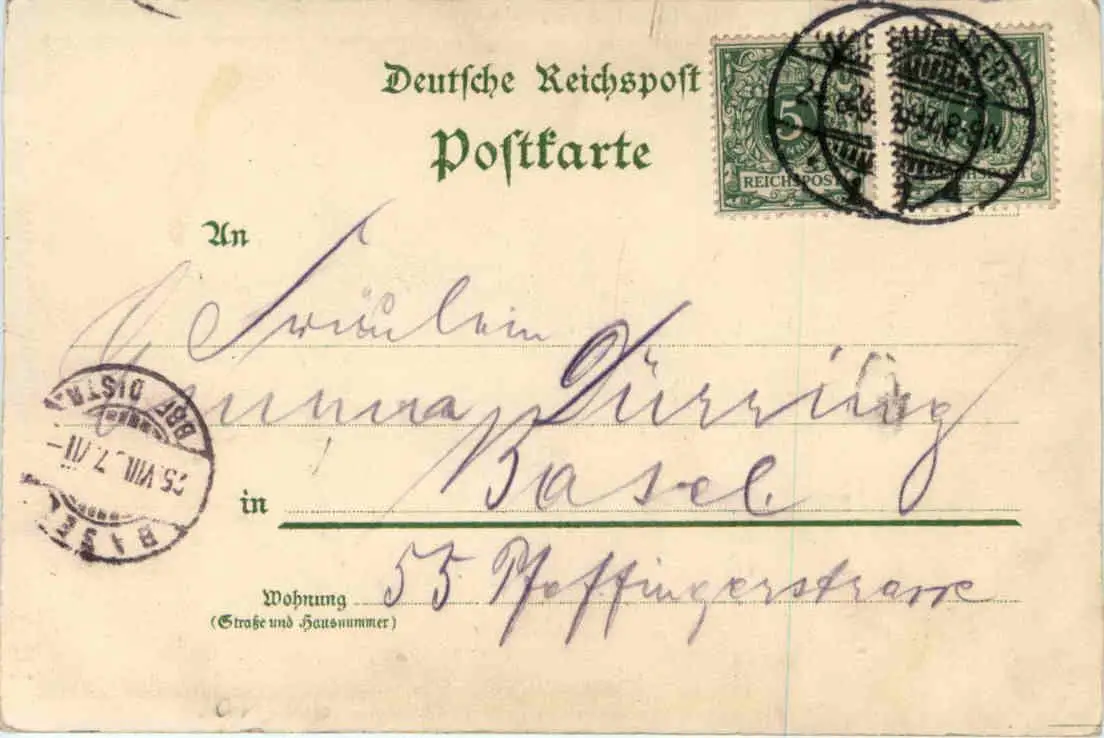 Deutsche Reichspost
Postkarte
5
REICHSPOST
REICHSPOST
8-9N
An
Fräulein
Anna Dürring
in Basel
Wohnung 55 Pfeffingerstrasse
(Straße und Hausnummer)
BASEL
BRF. DISTR.
25.VIII. 7